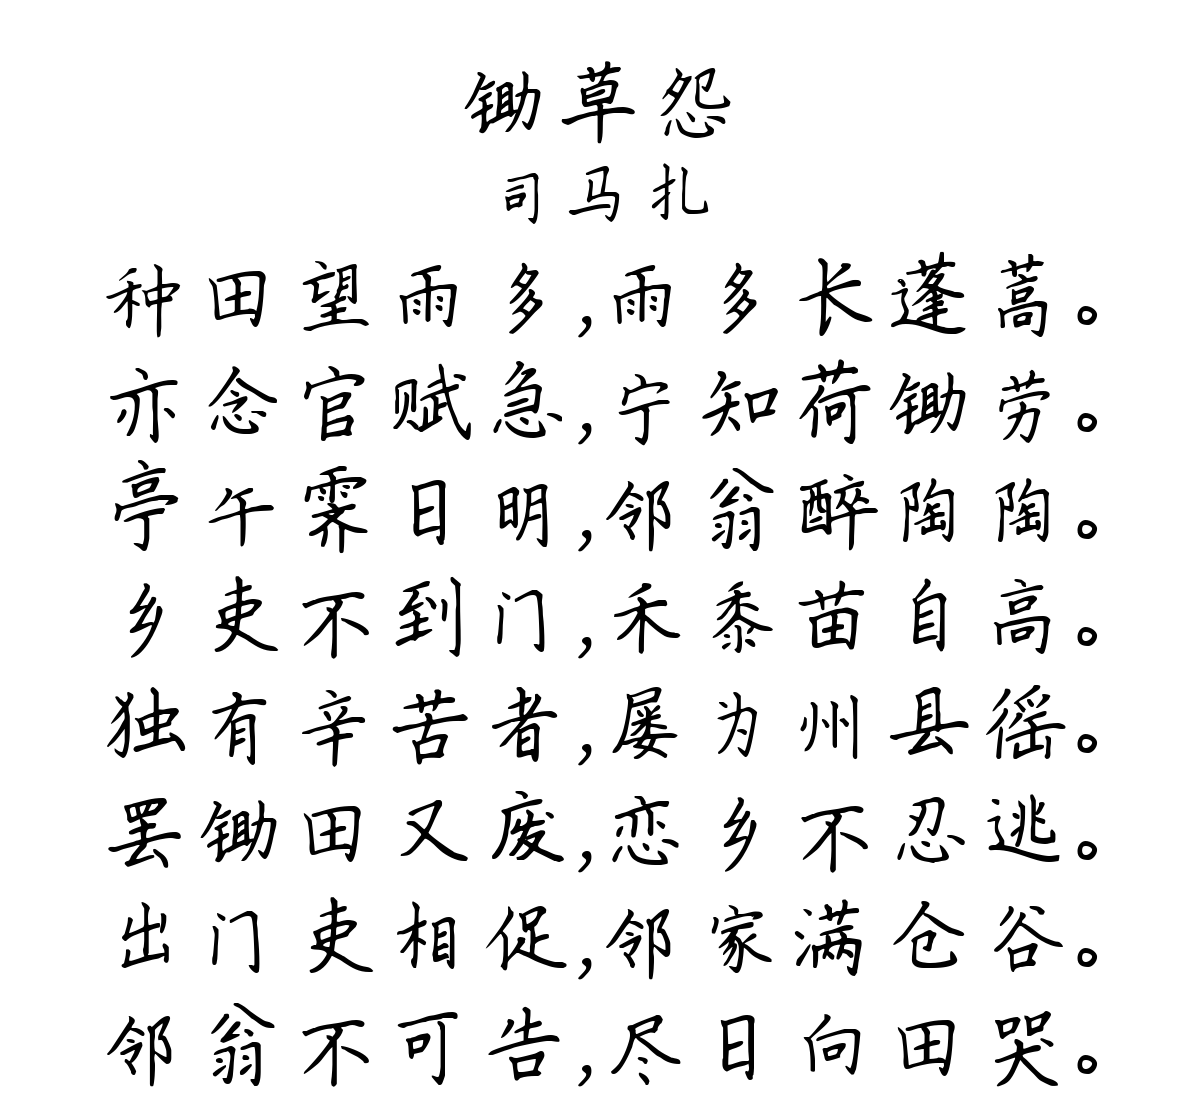 锄草怨
司马扎
种田望雨多,雨多长蓬蒿。
亦念官赋急,宁知荷锄劳。
亭午霁日明,邻翁醉陶陶。
乡吏不到门,禾黍苗自高。
独有辛苦者,屡为州县徭。
罢锄田又废,恋乡不忍逃。
出门吏相促,邻家满仓谷。
邻翁不可告,尽日向田哭。